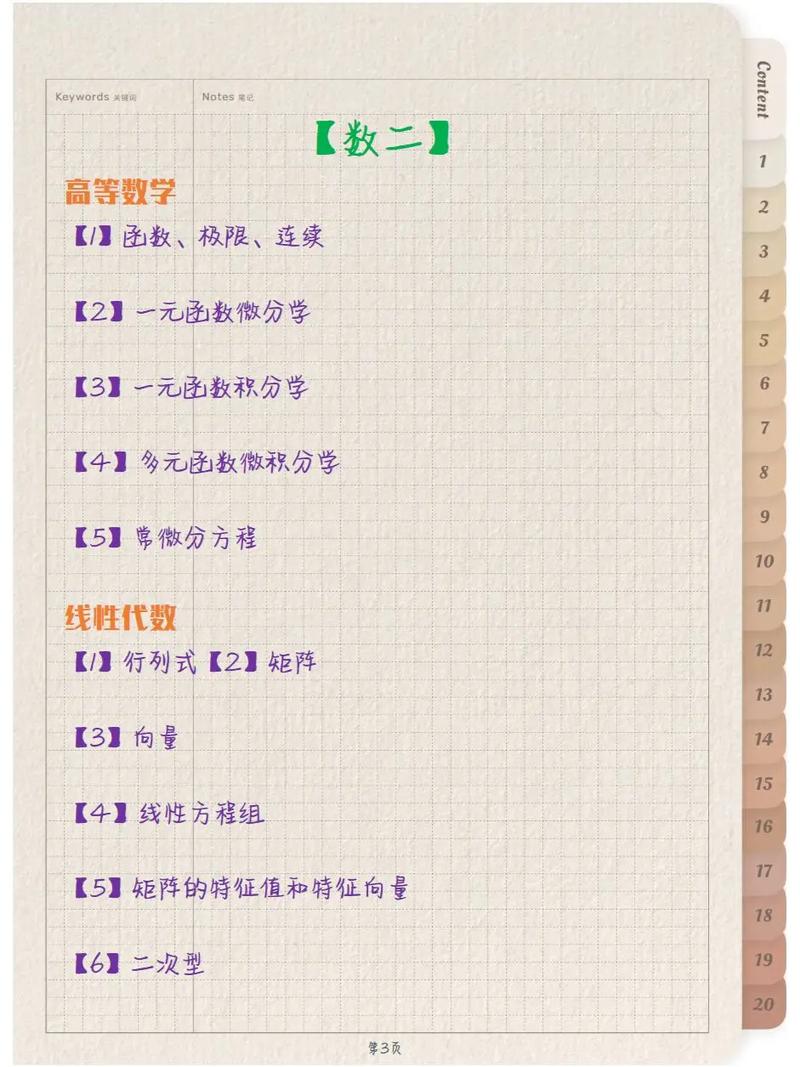 Keywords 关键词 Notes 笔记
【数二】
高等数学
【1】函数、极限、连续
【2】一元函数微分学
【3】一元函数积分学
【4】多元函数微积分学
【5】常微分方程
线性代数
【1】行列式【2】矩阵
【3】向量
【4】线性方程组
【5】矩阵的特征值和特征向量
【6】二次型
第3页
Content
1
2
3
4
5
6
7
8
9
10
11
12
13
14
15
16
17
18
19
20